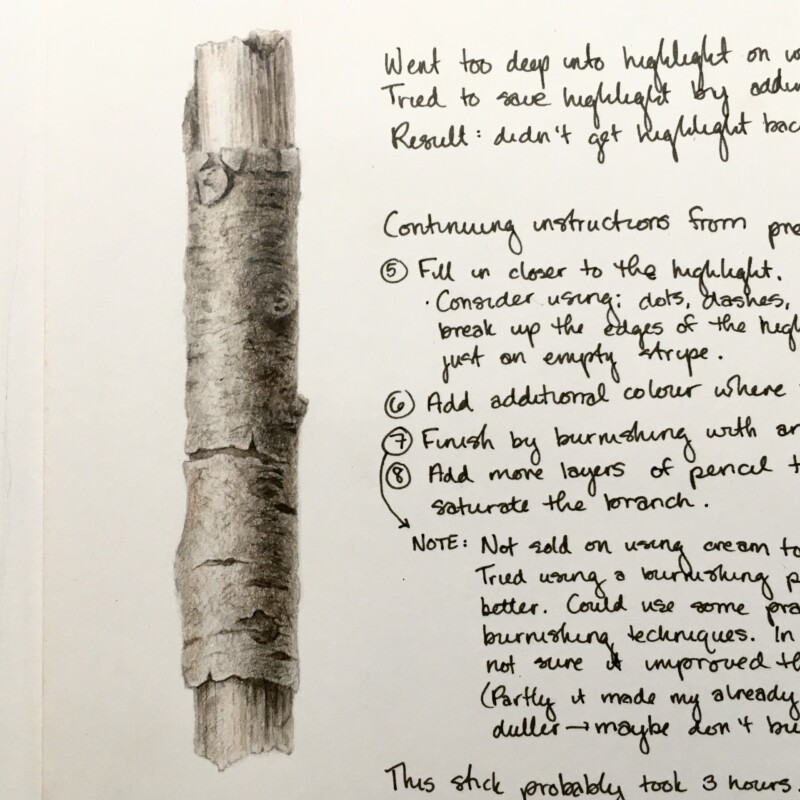 Went too deep into highlight on
Tried to save highlight by
Result: didn't get highlight
Continuing instructions from
⑤ Fill in closer to the highlight.
· Consider using: dots, dashes,
break up the edges of the
just an empty stripe.
⑥ Add additional colour where
⑦ Finish by burnishing with
⑧ Add more layers of pencil
saturate the branch.
NOTE: Not sold on using cream to
Tried using a burnishing
better. Could use some
burnishing techniques. In
not sure it improved
(Partly it made my already
duller → maybe don't
This stick probably took 3 hours.